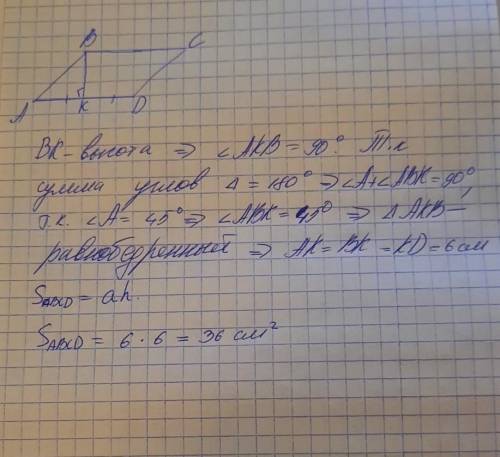 B C
A K D
BK - высота => ∠AKB = 90°. Т.к
сумма углов Δ = 180° => ∠A+∠ABK = 90°,
т.к. ∠A = 45° => ∠ABK = 45° => Δ AKB -
равнобедренный => AK = BK = KD = 6 см
S_ABCD = ah.
S_ABCD = 6 · 6 = 36 см²